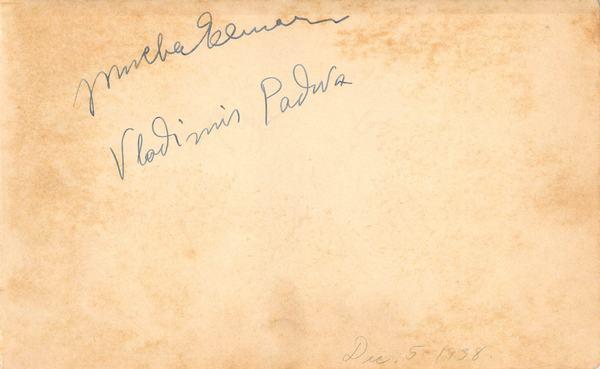 Mischa Elman
Vladimir Padwa
Dec. 5 1938